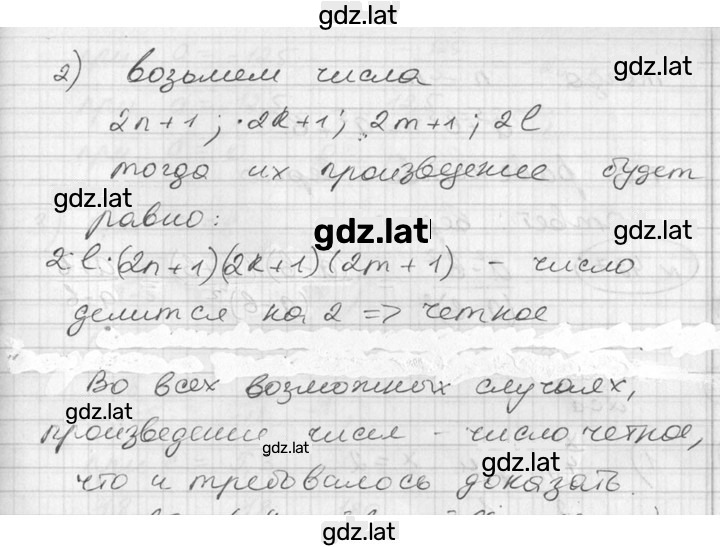 gdz.lat
2) возьмем числа gdz.lat
2n+1; ·2k+1; 2m+1; 2l
тогда их произведение будет
gdz.lat
равно: gdz.lat gdz.lat
2·l·(2n+1)(2k+1)(2m+1) - число
делится на 2 => четное
Во всех возможных случаях,
gdz.lat
произведение чисел - число четное,
gdz.lat gdz.lat
что и требовалось доказать.
gdz.lat